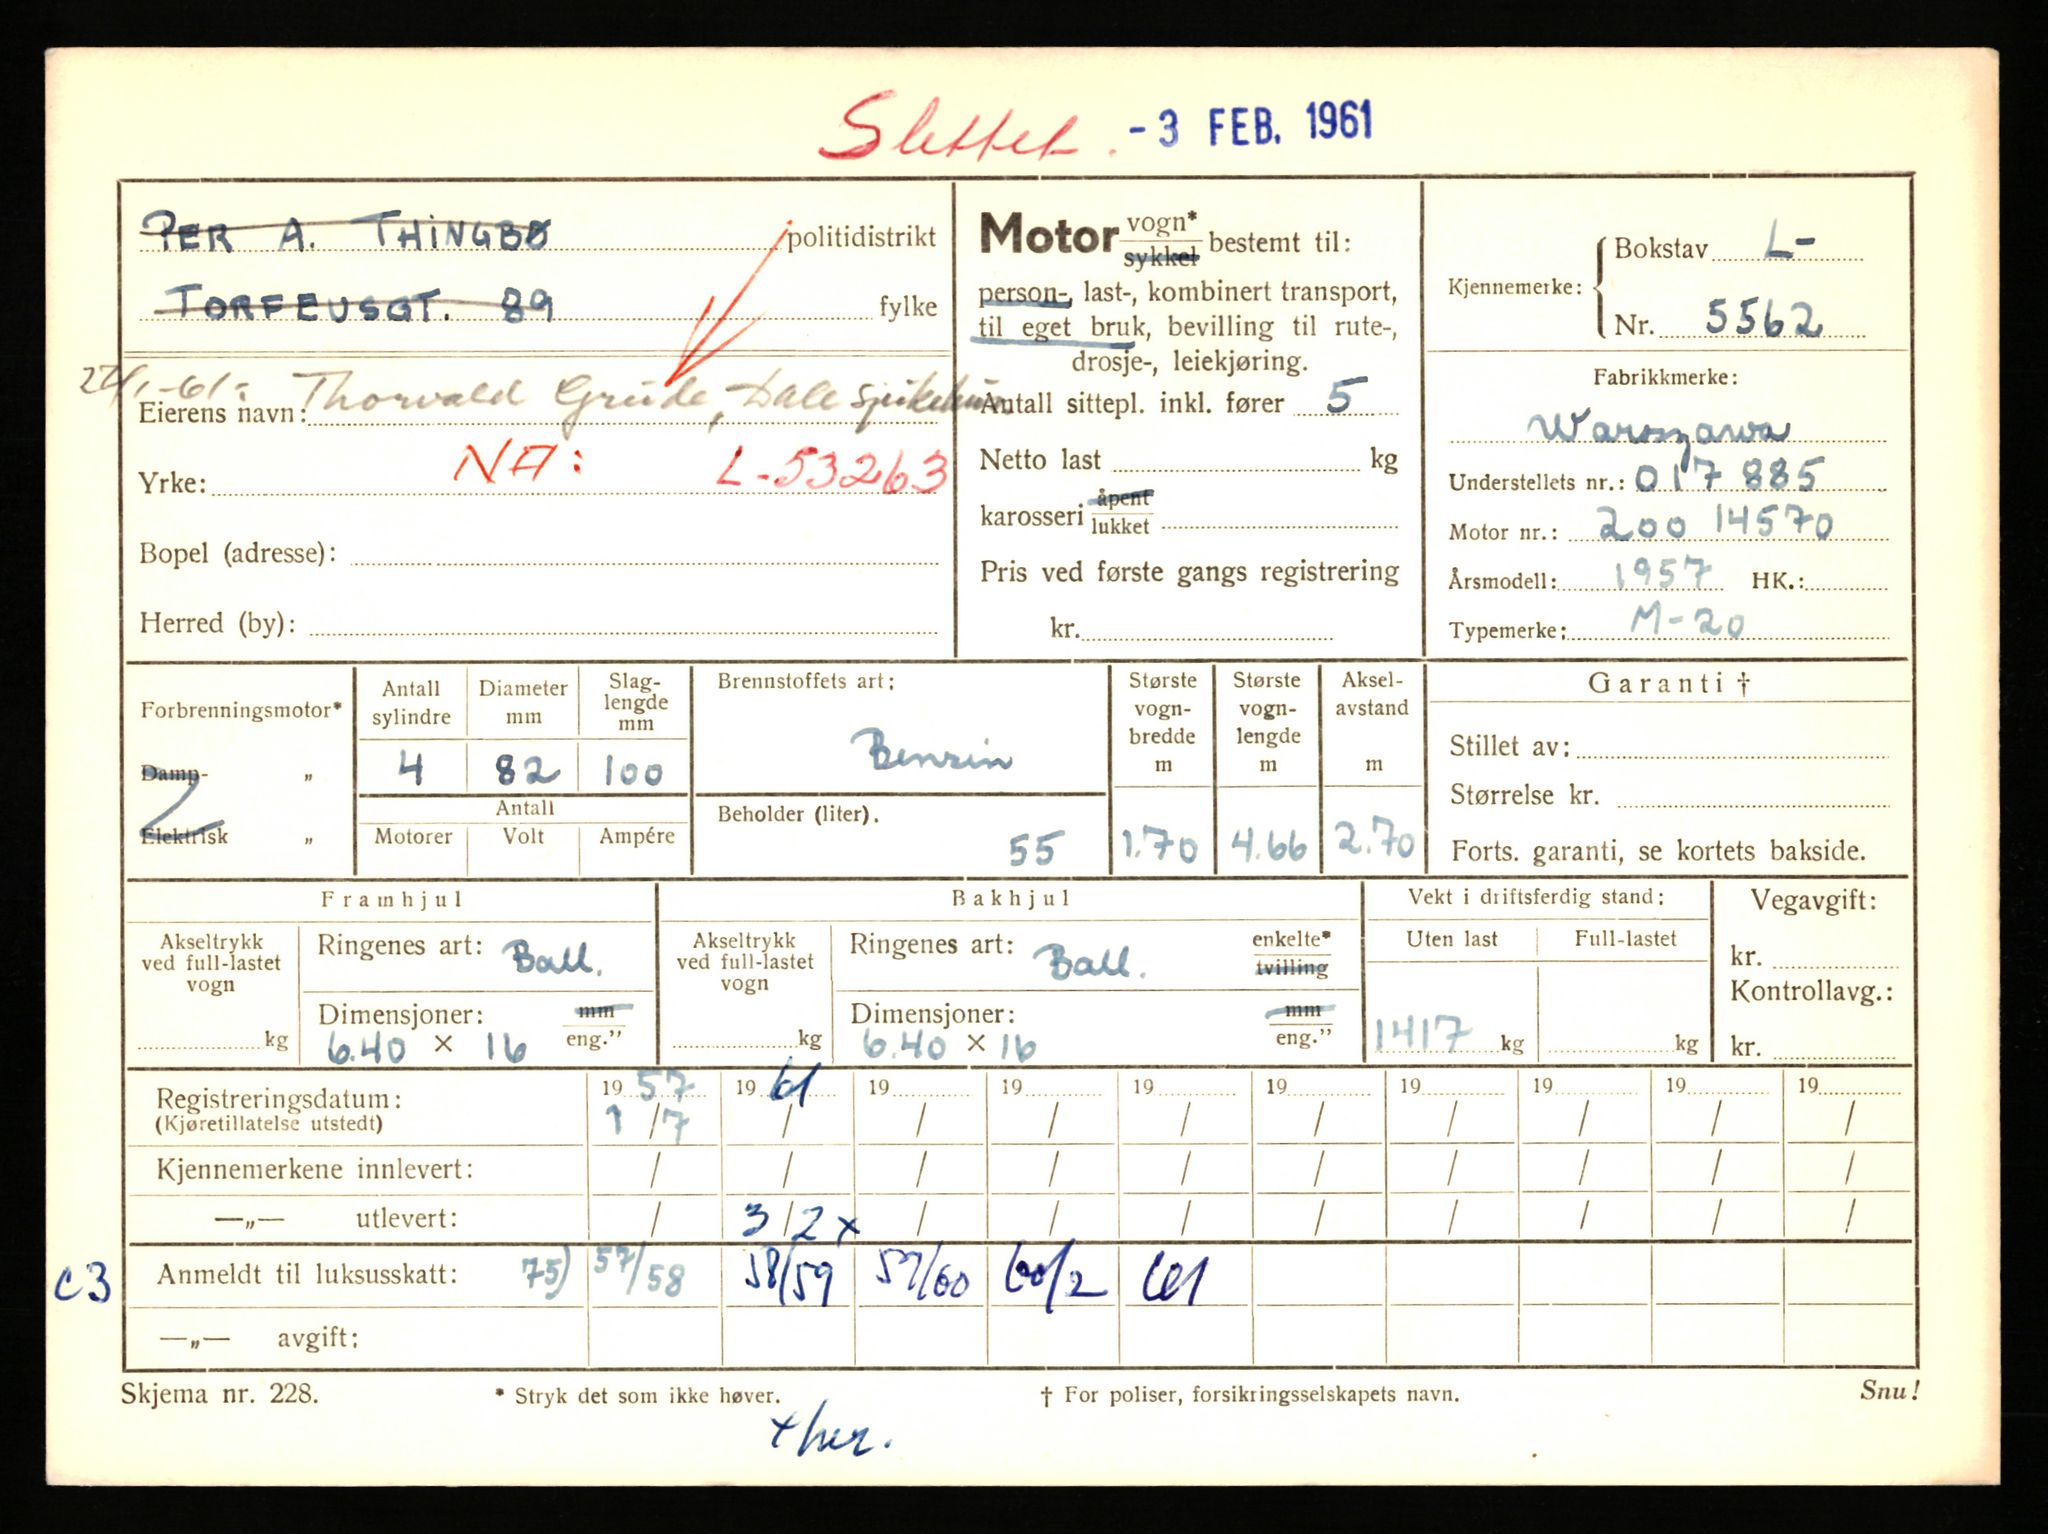 Slettet. - 3 FEB. 1961
PER A. THINGBØ politidistrikt
TORFEUSGT. 89 fylke
Eierens navn: Thorvald Grude, Dale sjukehus
Yrke: NA: L-53263
Bopel (adresse):
Herred (by):
Motor vogn* sykkel bestemt til:
person-, last-, kombinert transport,
til eget bruk, bevilling til rute-,
drosje-, leiekjøring.
Antall sittepl. inkl. fører 5
Netto last kg
karosseri åpent lukket
Pris ved første gangs registrering
kr.
Kjennemerke: Bokstav L-
Nr. 5562
Fabrikkmerke:
Warszawa
Understellets nr.: 017885
Motor nr.: 200 14570
Årsmodell: 1957 HK.:
Typemerke: M-20
Forbrenningsmotor*
Damp- „
Elektrisk „
Antall sylindre
Diameter mm
Slag-
lengde
mm
4 82 100
Antall
Motorer Volt Ampére
Brennstoffets art:
Benzin
Beholder (liter).
55
Største
vogn-
bredde
m
1.70
Største
vogn-
lengde
m
4.66
Aksel-
avstand
m
2.70
Garanti †
Stillet av:
Størrelse kr.
Forts. garanti, se kortets bakside.
Framhjul
Akseltrykk
ved full-lastet
vogn
kg
Ringenes art: Ball.
Dimensjoner: mm
6.40 × 16 eng.”
Bakhjul
Akseltrykk
ved full-lastet
vogn
kg
Ringenes art: Ball. enkelte*
tvilling
Dimensjoner: mm
6.40 × 16 eng.”
Vekt i driftsferdig stand:
Uten last Full-lastet
1417 kg kg
Vegavgift:
kr.
Kontrollavg.:
kr.
Registreringsdatum: 19 57 19 61 19 19 19 19 19 19 19 19
(Kjøretillatelse utstedt) 1/7 / / / / / / / / /
Kjennemerkene innlevert: / / / / / / / / / /
—„— utlevert: / 3/2 x / / / / / / / /
c3 Anmeldt til luksusskatt: 75) 57/58 58/59 59/60 60/2 61
—„— avgift:
Skjema nr. 228. * Stryk det som ikke høver. † For poliser, forsikringsselskapets navn. Snu!